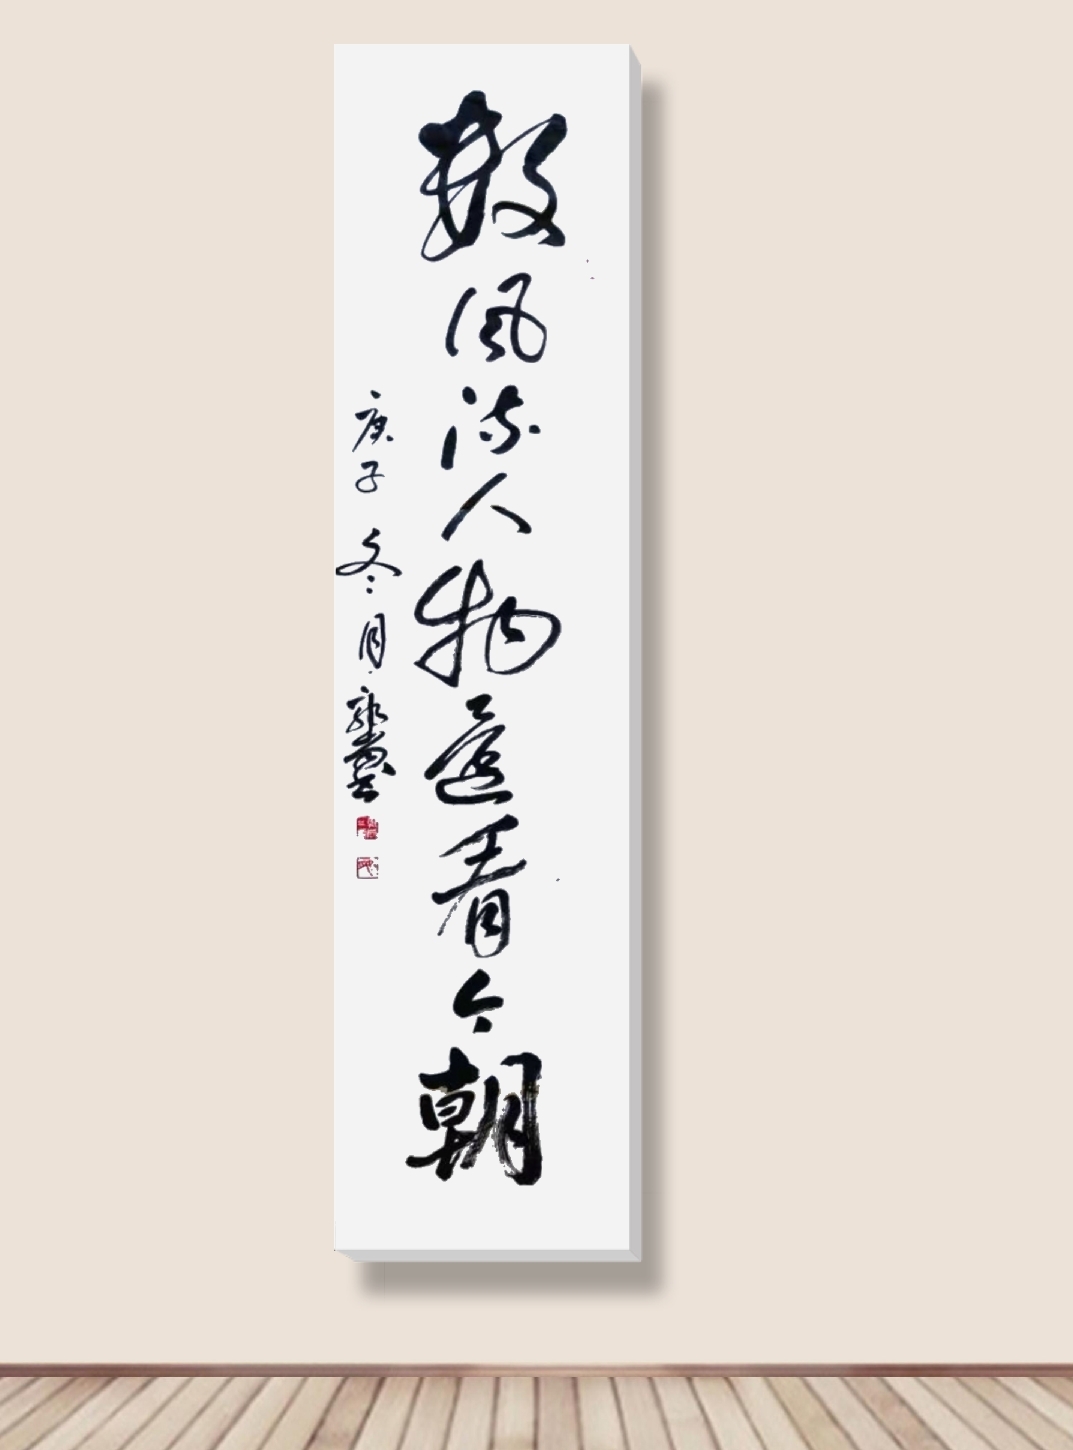 数风流人物还看今朝
庚子冬月